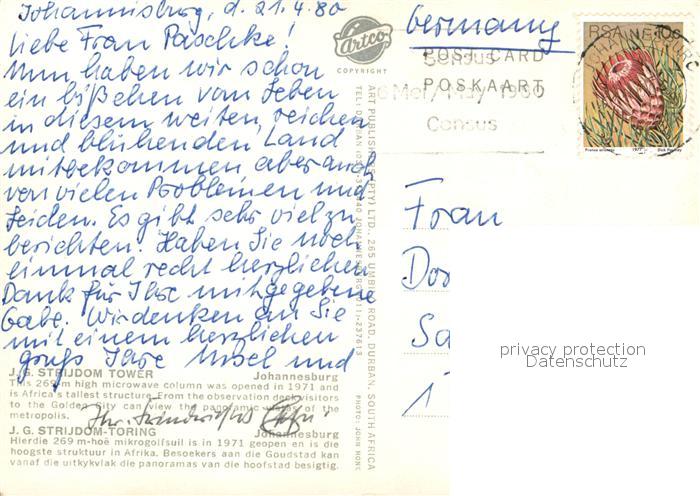 Johannisburg, d. 21.4.80
Liebe Frau Paschke!
Nun haben wir schon
ein bißchen vom Leben
in diesem weiten, reichen
und blühenden Land
mitgekommen aber auch
von vielen Problemen und
Leiden. Es gibt sehr viel zu
berichten. Haben Sie noch
einmal recht herzlichen
Dank für Ihre mitgegebene
Gabe. Wir denken an Sie
mit einem herzlichen
gruß Ihre Ursel und
J. G. STRIJDOM TOWER Johannesburg
This 269 m high microwave column was opened in 1971 and
is Africa's tallest structure. From the observation deck visitors
to the Golden City can view the panoramic of the
metropolis.
J. G. STRIJDOM-TORING Johannesburg
Hierdie 269 m-hoë mikrogolfsuil is in 1971 geopen en is die
hoogste struktuur in Afrika. Besoekers aan die Goudstad kan
vanaf die uitkykvlak die panoramas van die hoofstad besigtig.
Artco
COPYRIGHT
ART PUBLISHERS (PTY) LTD., 265 UMBILO ROAD, DURBAN, SOUTH AFRICA
PHOTO: JOHN HONE
Germany
POST CARD
POSKAART
Sensus
6 Mei/May 1980
Census
RSA 10c
1977
Dick Findlay
Frau
privacy protection
Datenschutz